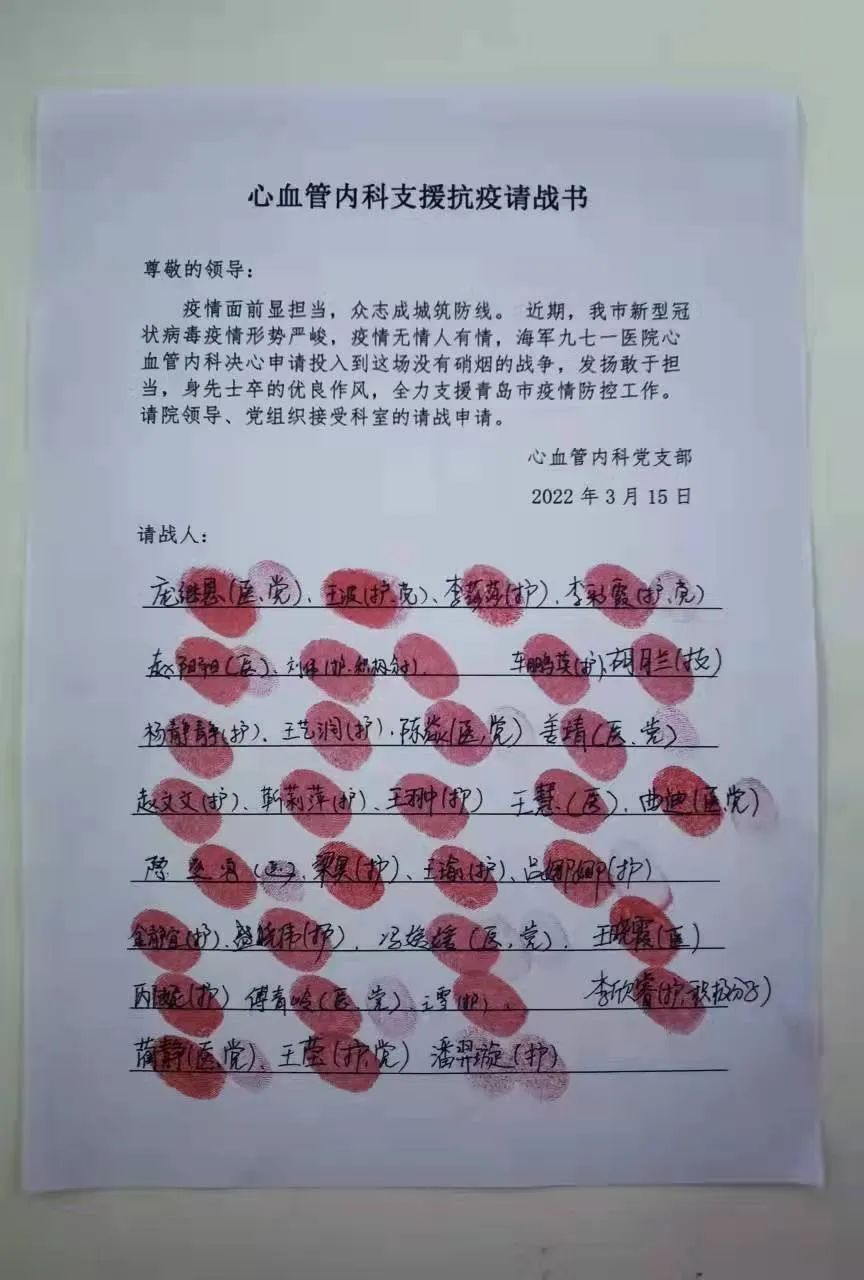 心血管内科支援抗疫请战书
尊敬的领导：
疫情面前显担当，众志成城筑防线。 近期，我市新型冠
状病毒疫情形势严峻，疫情无情人有情，海军九七一医院心
血管内科决心申请投入到这场没有硝烟的战争，发扬敢于担
当，身先士卒的优良作风，全力支援青岛市疫情防控工作。
请院领导、党组织接受科室的请战申请。
心血管内科党支部
2022 年 3 月 15 日
请战人：
庞继恩(医、党)、王波(护、党)、李莎莎(护)、李彩霞(护、党)
赵阳阳(医)、刘伟(护、积极分子) 车鹏英(护)、胡月兰(技)
杨静静(护)、王艺润(护)、陈焱(医、党) 姜靖(医、党)
赵文文(护)、靳莉萍(护)、王翔中(护) 王慧(医)、曲迪(医、党)
(医)、梁昊(护)、王瑜(护)、吕娜娜(护)
金静宜(护)、晓伟(护)、冯媛媛(医、党)、王晓霞(医)
(护) 傅青岭(医、党)、王雪(护)、 李欣睿(护、积极分子)
蔺静(医、党)、王莹(护、党) 潘羿璇(护)